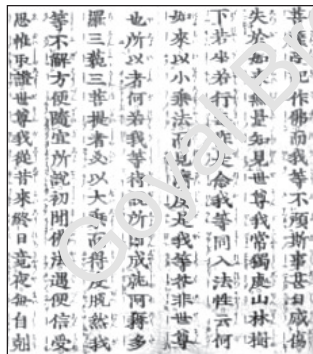 菩薩受記作佛而我等不預斯事甚自感傷
失於如來無量知見世尊我常獨處山林樹
下若坐若行每作是念我等同入法性云何
如來以小乘法而見濟度是我等咎非世尊
也所以者何若我等待說所因成就阿耨多
羅三藐三菩提者必以大乘而得度脫然我
等不解方便隨宜所說初聞佛法遇便信受
思惟取證世尊我從昔來終日竟夜每自剋
Goyal B